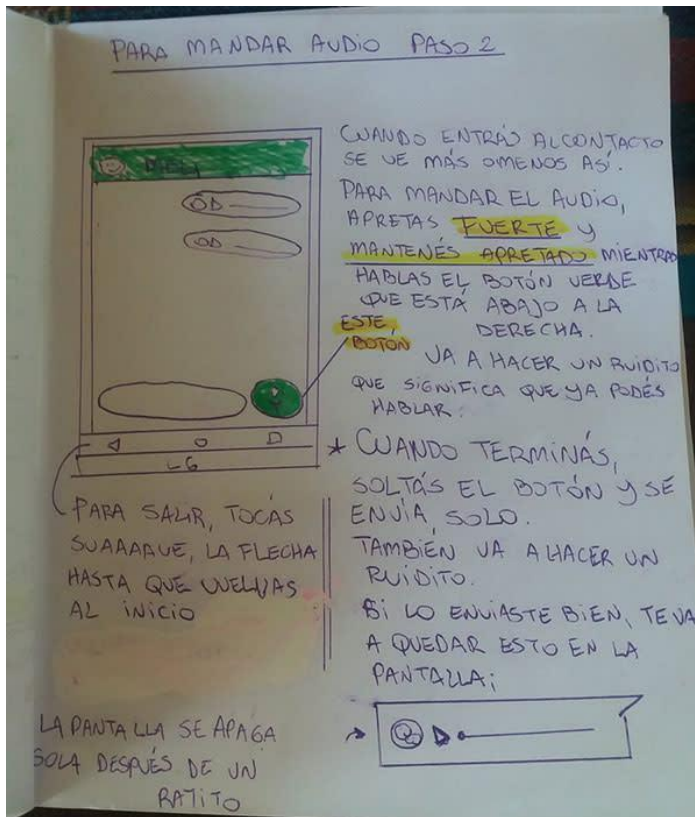 PARA MANDAR AUDIO PASO 2
CUANDO ENTRÁS AL CONTACTO
SE VE MÁS OMENOS ASÍ.
PARA MANDAR EL AUDIO,
APRETAS FUERTE Y
MANTENÉS APRETADO MIENTRAS
HABLAS EL BOTÓN VERDE
QUE ESTÁ ABAJO A LA
DERECHA.
ESTE
BOTÓN
VA A HACER UN RUIDITO
QUE SIGNIFICA QUE YA PODÉS
HABLAR.
LG
* CUANDO TERMINÁS,
SOLTÁS EL BOTÓN Y SE
ENVÍA SOLO.
TAMBIÉN VA A HACER UN
RUIDITO.
SI LO ENVIASTE BIEN, TE VA
A QUEDAR ESTO EN LA
PANTALLA;
PARA SALIR, TOCÁS
SUAAAAVE, LA FLECHA
HASTA QUE VUELVAS
AL INICIO
LA PANTALLA SE APAGA
SOLA DESPUÉS DE UN
RATITO